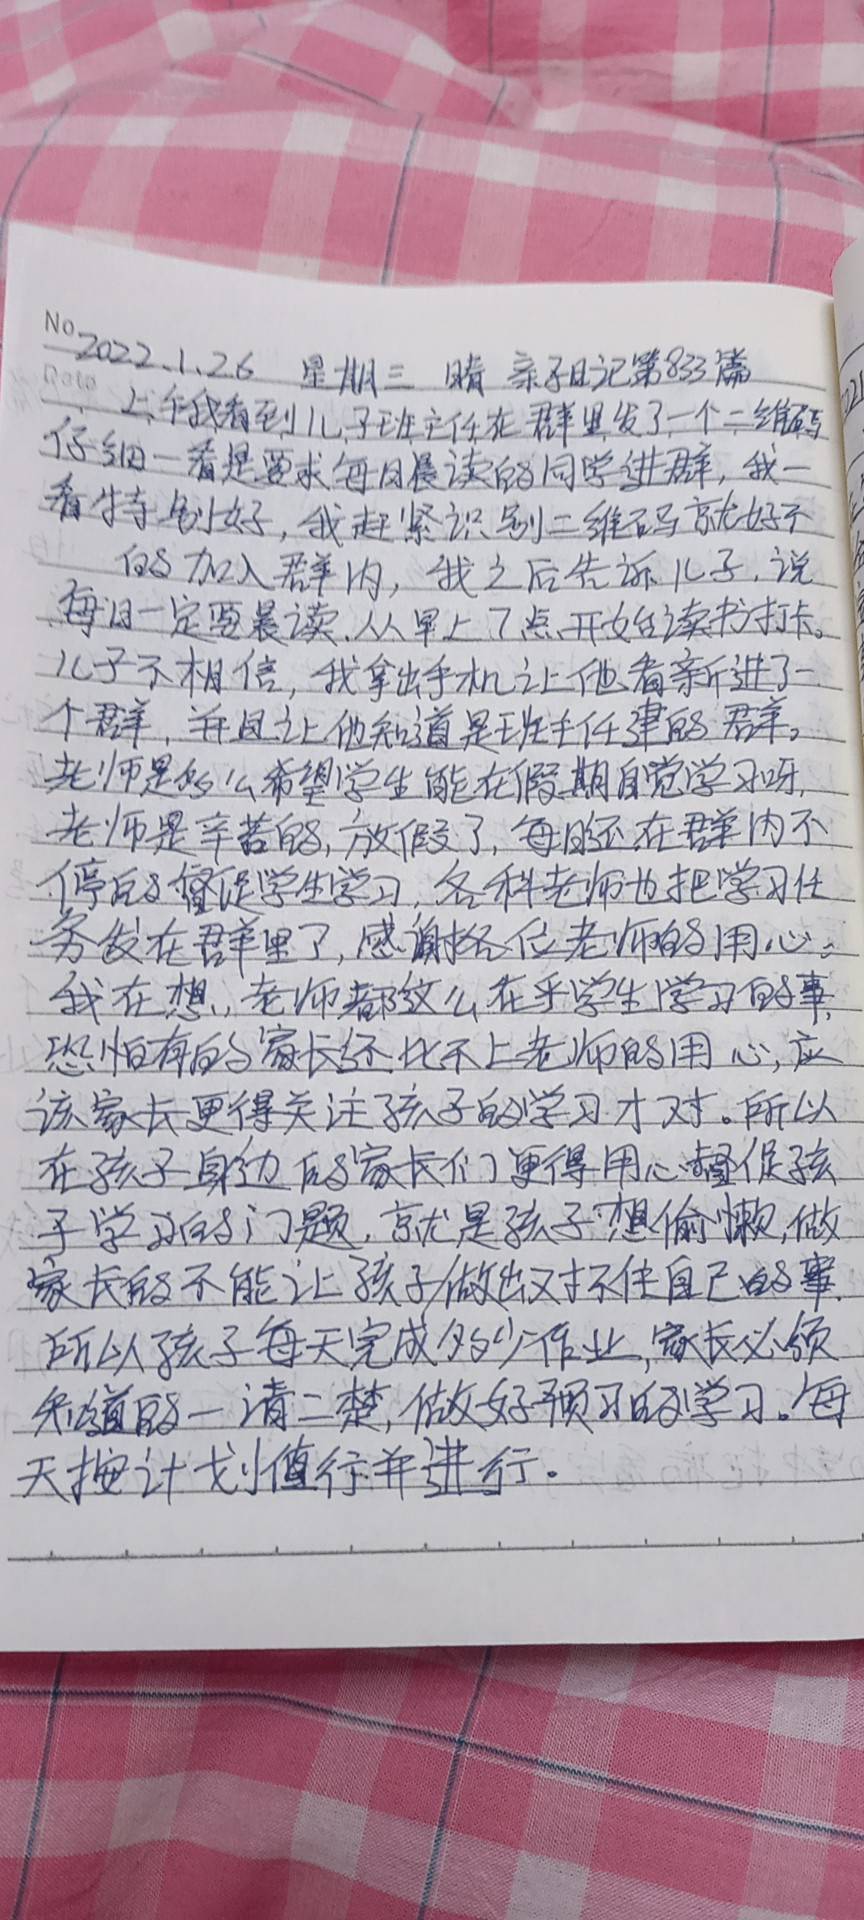 No
2022.1.26 星期三 晴 亲子日记第833篇
Date
上午我看到儿子班主任在群里发了一个二维码
仔细一看是要求每日晨读的同学进群，我一
看特别好，我赶紧识别二维码就好不
的加入群内，我之后告诉儿子，说
每日一定要晨读，从早上7点开始读书打卡。
儿子不相信，我拿出手机让他看新进了一
个群，并且让他知道是班主任建的群。
老师是多么希望学生能在假期自觉学习呀，
老师是辛苦的，放假了，每日还在群内不
停的督促学生学习，各科老师也把学习任
务发在群里了，感谢各位老师的用心。
我在想，老师都这么在乎学生学习的事，
恐怕有的家长还比不上老师的用心，应
该家长更得关注孩子的学习才对。所以
在孩子身边的家长们更得用心督促孩
子学习的问题，就是孩子想偷懒，做
家长的不能让孩子做出对不住自己的事，
所以孩子每天完成多少作业，家长必须
知道的一清二楚，做好预习的学习。每
天按计划值行并进行。